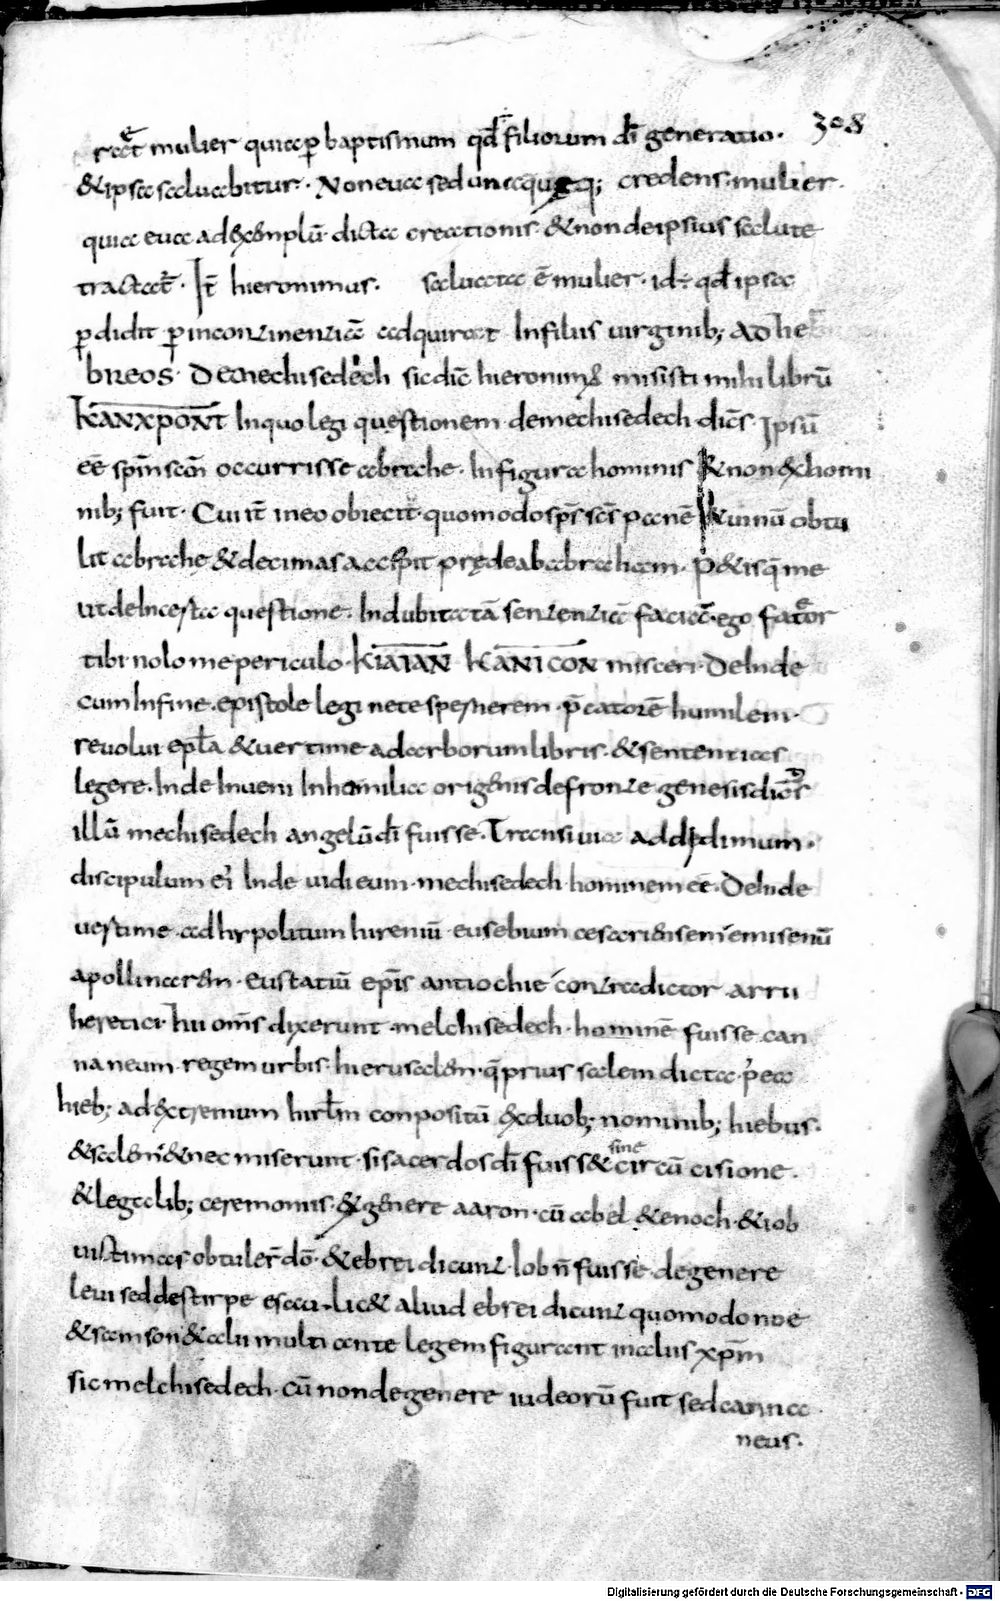 308
rat mulier quia ꝑ baptismum qđ filiorum dī generatio·
&ipsa saluabitur· Non eua sed unaquęq; credens mulier·
quia eua ad exemplū dicta creationis &non de ipsius salute
tractat̄· It̄ hieronimus· saluata ē mulier· id ÷ qđ ipsa
ꝑdidit ꝑ incontinentiā adquirat In filiis uirginib; AD he
breos· De mechisedech sic dic̄ hieronimꝰ misisti mihi librū
KANXPONT In quo legi questionem de mechisedech dicēs Ipsū
eē sp̄m sc̄m occurrisse abrahe· In figura hominis &non ex homi
nib; fuit· Cui it̄ in eo obiecit· quomodo sp̄s sc̄s panē &uinū obtu
lit abrahe &decimas accepit prędę ab abraham· P&isq̄ me
ut de Incerta questione· Indubitatā sententiā faciā· ego fateor
tibi nolo me periculo KIAIAN KANICON misceri· DeInde
cum In fine epistole legi ne te spernerem p̄catorē humilem·
reuolui epl̄a &uerti me ad arborum libris· &sententias
legere· Inde Inueni In homilia origenis de fronte genesis dicēs
illū mechisedech angelū dī fuisse· Transiui ad didimum·
discipulum ei Inde uidi eum mechisedech hominem eē· DeInde
uerti me ad hypolitum hireniū eusebium cesariensem emisenū
apollinaren· eustatiū ep̄is antiochie contradictor arrii
heretici· hii om̄s dixerunt melchisedech hominē fuisse can
naneum regem urbis hierusalem· q̄ prius salem dicta p̄ea
hieb; ad extremum hirl̄m conpositū ex duob; nominib; hiebus·
&salem &nec miserunt si sacerdos dī fuiss& sine circūcisione·
&legalib; ceremoniis &genere aaron· cū abel &enoch &iob
uictimas obtuler̄ dō· &ebrei dicunt Iob n̄ fuisse de genere
leui sed de stirpe esau· lic& aliud ebrei dicunt quomodo noe
&samson &alii multi ante legem figurant in aliis xp̄m
sic melchisedech· cū non de genere iudeorū fuit sed canna
neus·
Digitalisierung gefördert durch die Deutsche Forschungsgemeinschaft - DFG